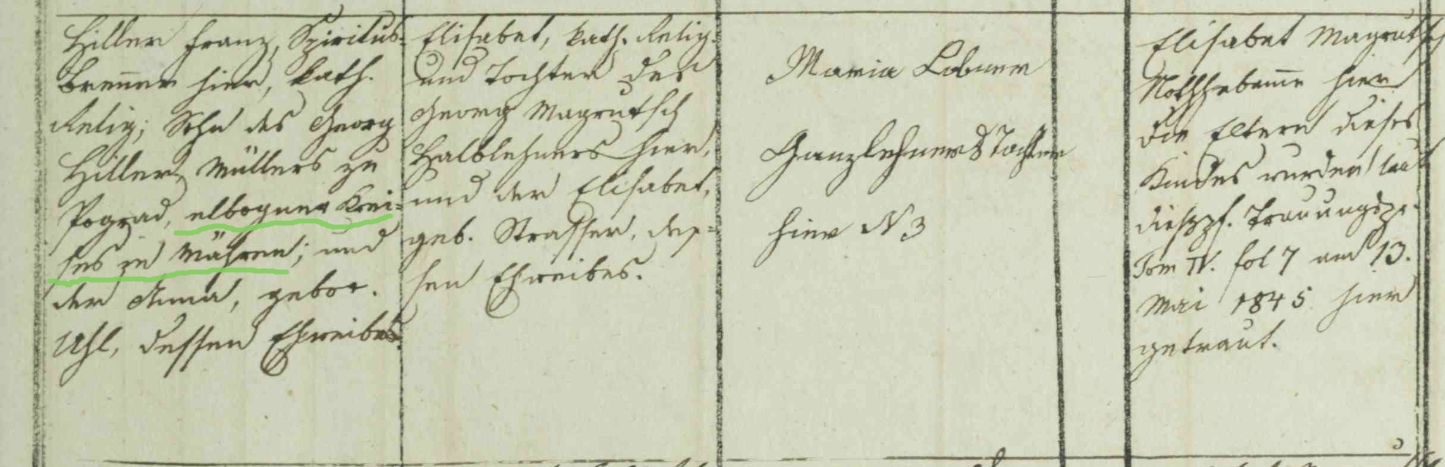 Hiller Franz, Spiritus-
brenner hier, kath.
Relig; Sohn des Georg
Hiller, Müllers zu
Pograd, elbogner Krei-
ses in Mähren; und
der Anna, gebor.
Uhl, dessen Eheweibes.
Elisabet, kath. Relig.
und Tochter des
Georg Magrutsch
Halblehners hier,
und der Elisabet,
geb. Strasser, des-
sen Eheweibes.
Maria Lobner
Ganzlehners Tochter
hier N 3
Elisabet Magrutsch
Nothhebamme hier
Die Eltern dieses
Kindes wurden laut
dießpf. Trauungspr.
Tom IV. fol 7 am 13.
Mai 1845 hier
getraut.